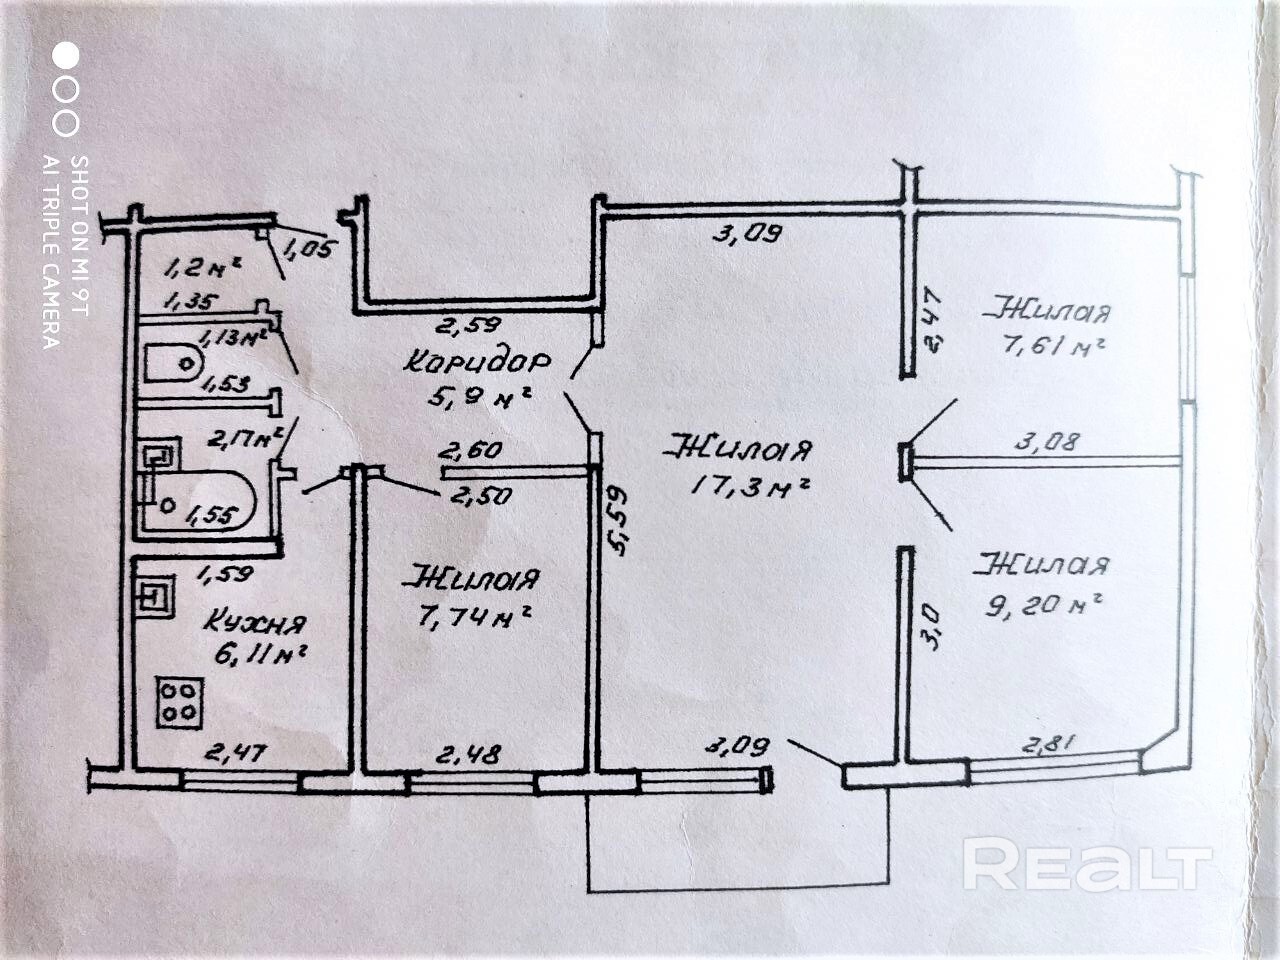 SHOT ON MI 9T
AI TRIPLE CAMERA
1,05
1,2 м²
1,35
1,13 м²
1,53
2,17 м²
1,55
1,59
Кухня
6,11 м²
2,47
2,59
Коридор
5,9 м²
2,60
2,50
Жилая
7,74 м²
2,48
3,09
Жилая
17,3 м²
5,59
3,09
2,47
Жилая
7,61 м²
3,08
Жилая
9,20 м²
3,0
2,81
REALT